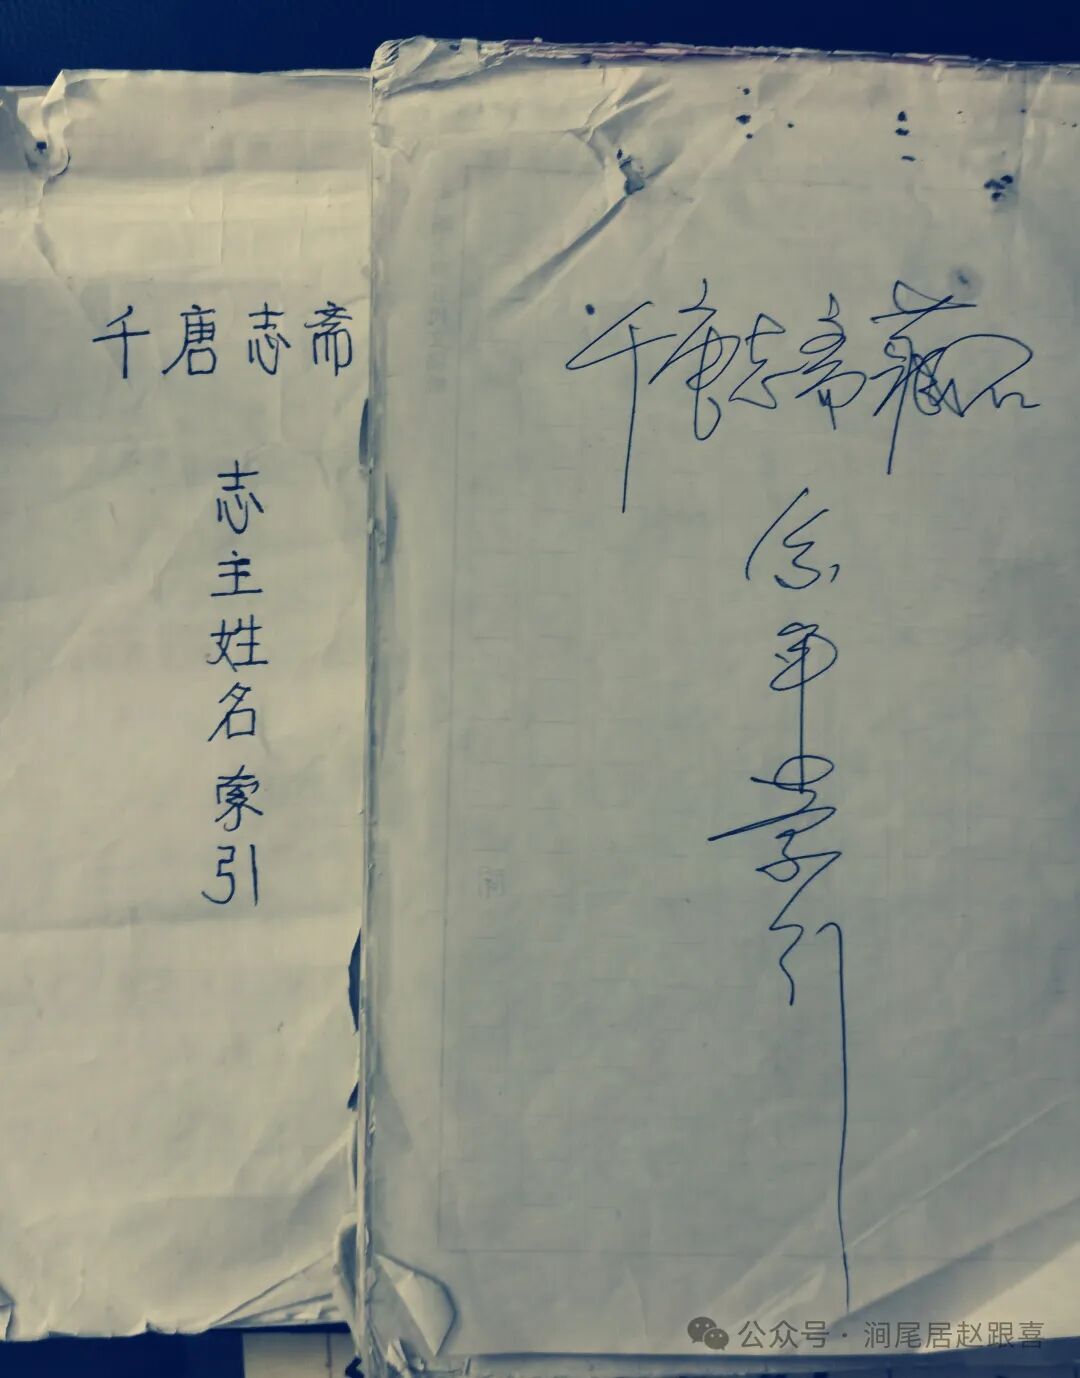 千唐志斋
志主姓名索引
千唐志斋藏石
年索引
公众号·涧尾居赵跟喜